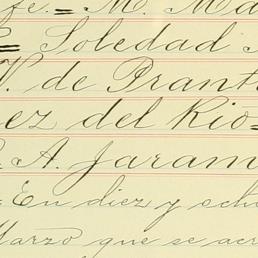 fe. = M. Ma
= Soledad
V. de Prant
ez del Rio =
A. Jaram
= En diez y och
Marzo que se acr